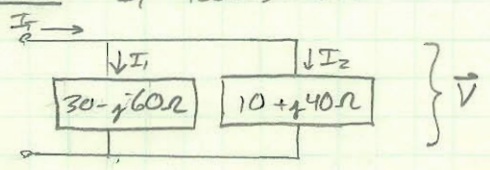 I_T →
↓I₁ ↓I₂
30-j60Ω 10+j40Ω
V⃗